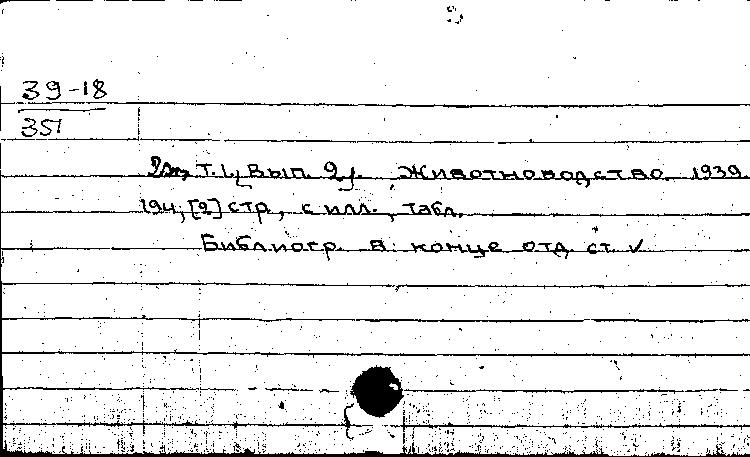 39-18
351
Т. 1, Вып. 2. Животноводство. 1939.
194, [2] стр, с илл., табл.
Библиогр. в конце отд. ст. ✓